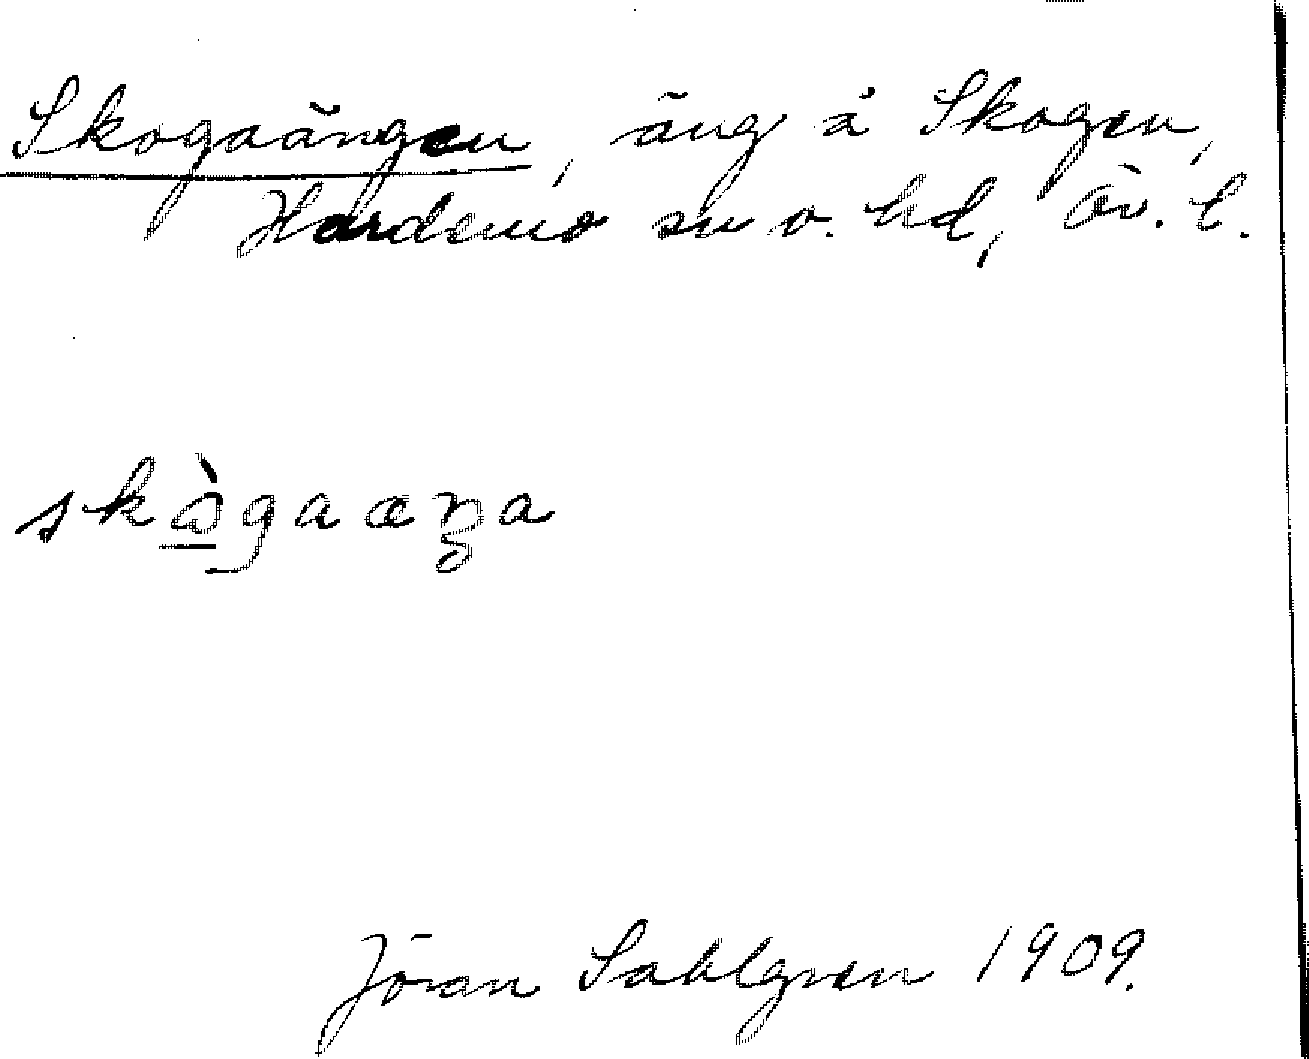 Skogaängen, äng å Skogen,
Hardemo sn o. hd, Ör. l.
skògaæŋa
Jöran Sahlgren 1909.